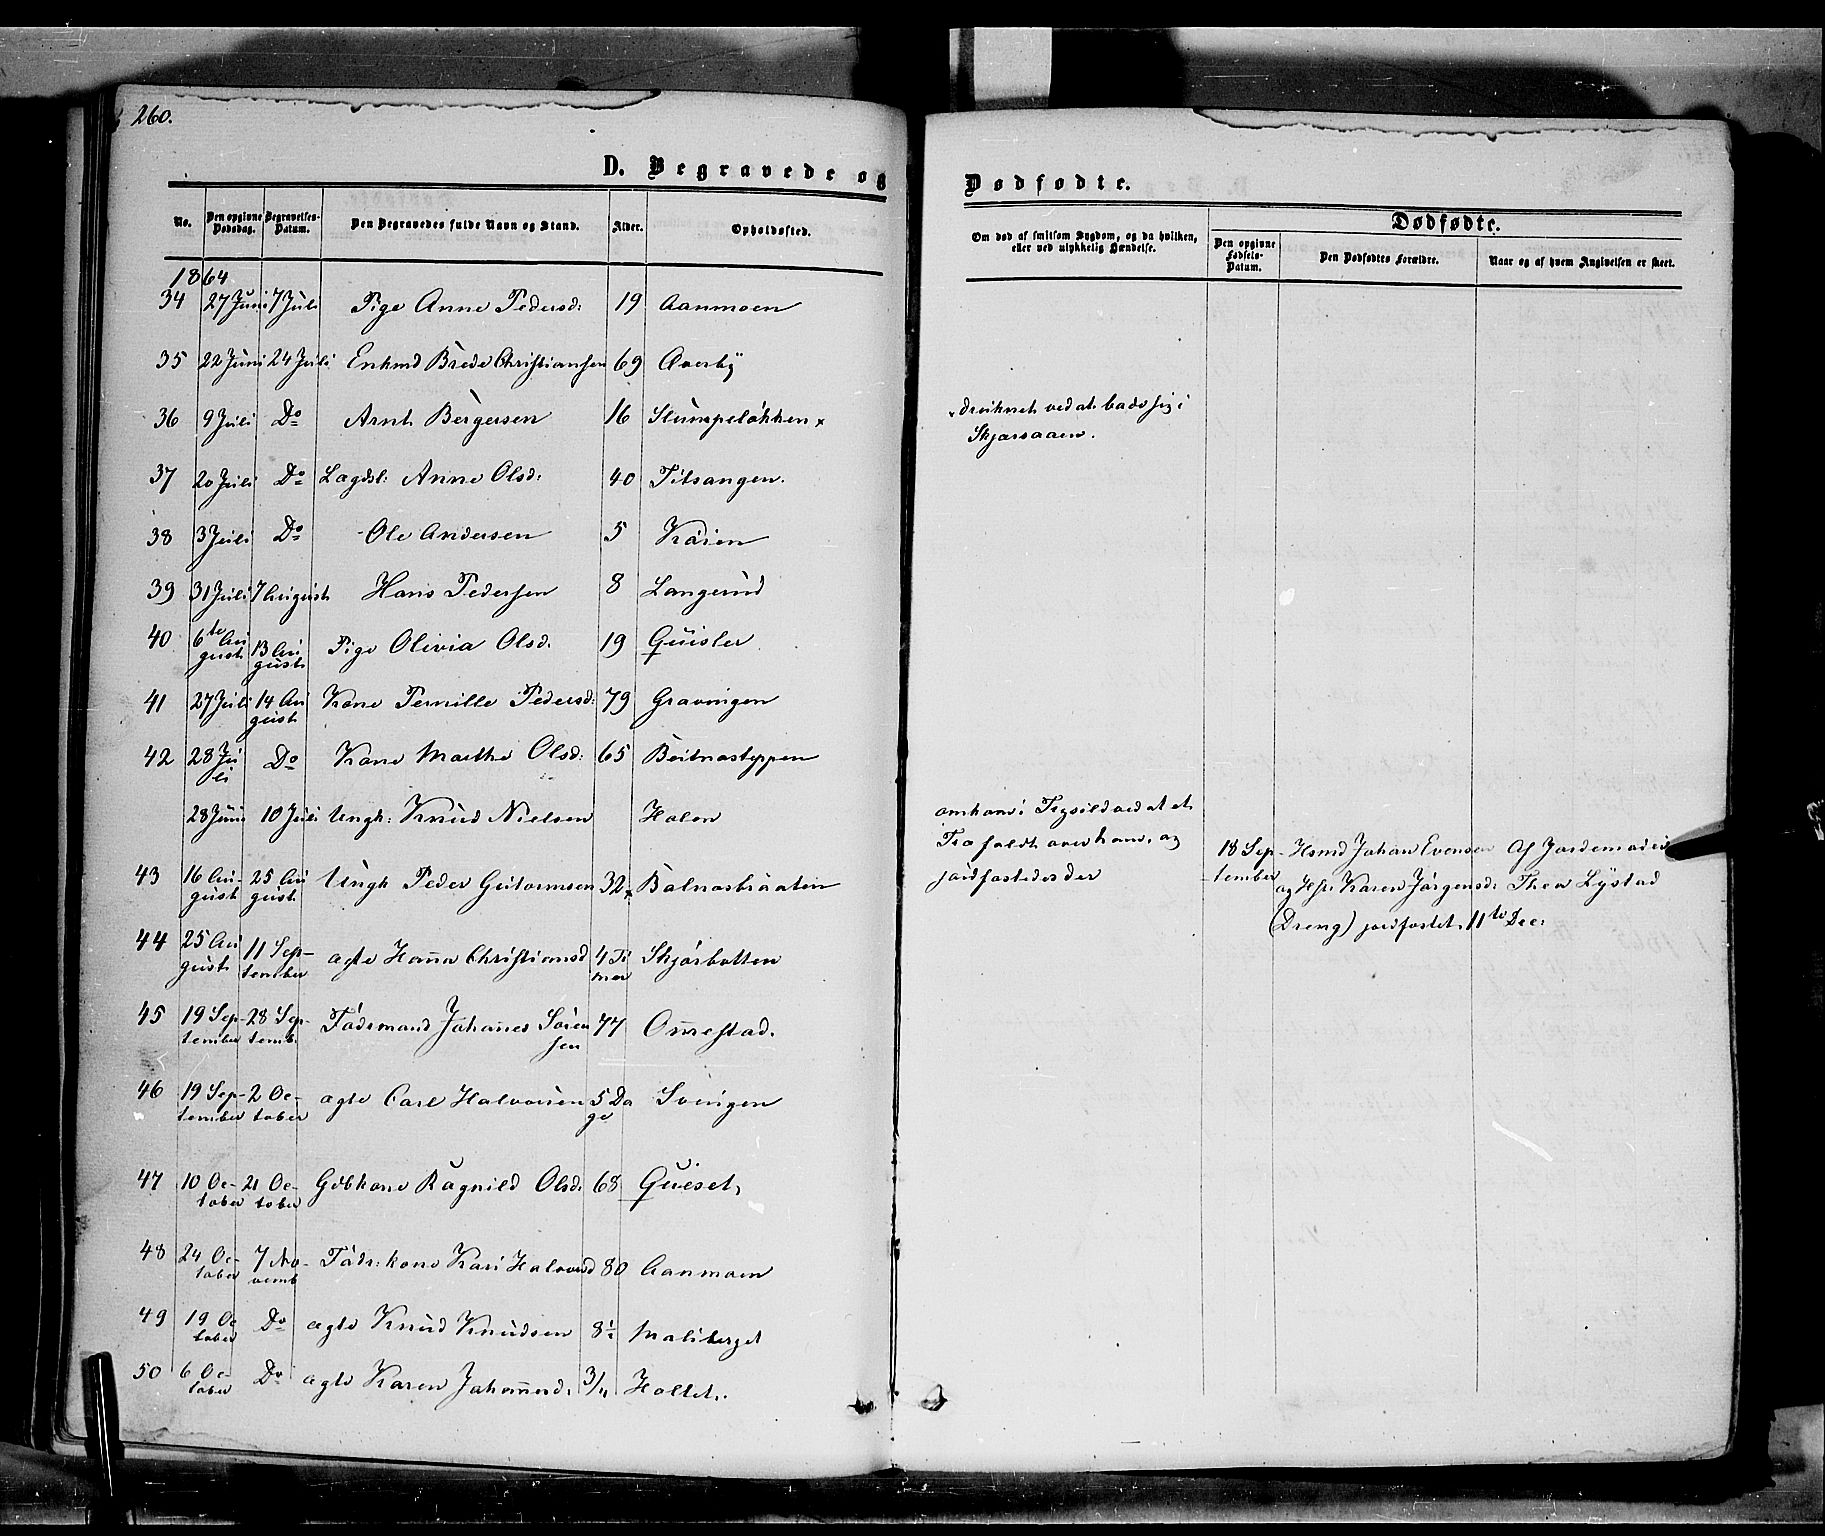 260.
D. Begravede og Dødfødte.
No. Den opgivne Dødsdag. Begravelses-Datum. Den Begravedes fulde Navn og Stand. Alder. Opholdssted. Om død af smitsom Sygdom, og da hvilken, eller ved ulykkelig Hændelse.
Dødfødte.
Den opgivne Fødsels-Datum. Den Dødfødtes Forældre. Naar og af hvem Angivelsen er skeet.
1864
34 27 Juni 7 Juli Pige Anne Pedersd: 19 Aanmoen
35 22 Juni 24 Juli Enkmd Brede Christiansen 69 Overby
36 9 Juli Do Arnt Bergersen 16 Slumpeløkken x
druknet ved at bade sig i
Skjæraaen.
37 20 Juli Do Lægdsl: Anne Olsd: 40 Titsangen.
38 3 Juli Do Ole Andersen 5 Krøien
39 31 Juli 7 August Hans Pedersen 8 Langerud
40 6te August 13 August Pige Olivia Olsd. 19 Quisler
41 27 Juli 14 August Kone Pernille Pedersd: 79 Gravingen
42 28 Juli Do Kone Marthe Olsd: 65 Beitnasteppen
28 Juni 10 Juli Ungk: Knud Nielsen Holen
omkom i Trysild ved at et
Træ faldt over ham, og
jordfæstedes der
43 16 August 25 August Ungk Peder Gutormsen 32 Balnasbraaten
18 September Hsmd Johan Evensen Af Jordemoder
og Hst: Karen Jørgensd: Thea Lystad
(Dreng) jordfæstet 11te Dec:
44 25 August 11 September ægte Hanna Christiansd 4 Timer Skjærbotten
45 19 September 28 Septemb. Fødsmand Johannes Sørensen 77 Omestad.
46 19 September 2 October ægte Carl Halvorsen 5 Dage Svingen
47 10 October 21 October Gbkone Ragnild Olsd: 68 Quiset,
48 24 October 7 Novemb Føds: kone Kari Halvorsd 80 Aanmoen
49 19 October Do ægte Knud Knudsen 8½ Maliberget
50 6 October Do ægte Karen Johannesd. 3/4 Holtet.